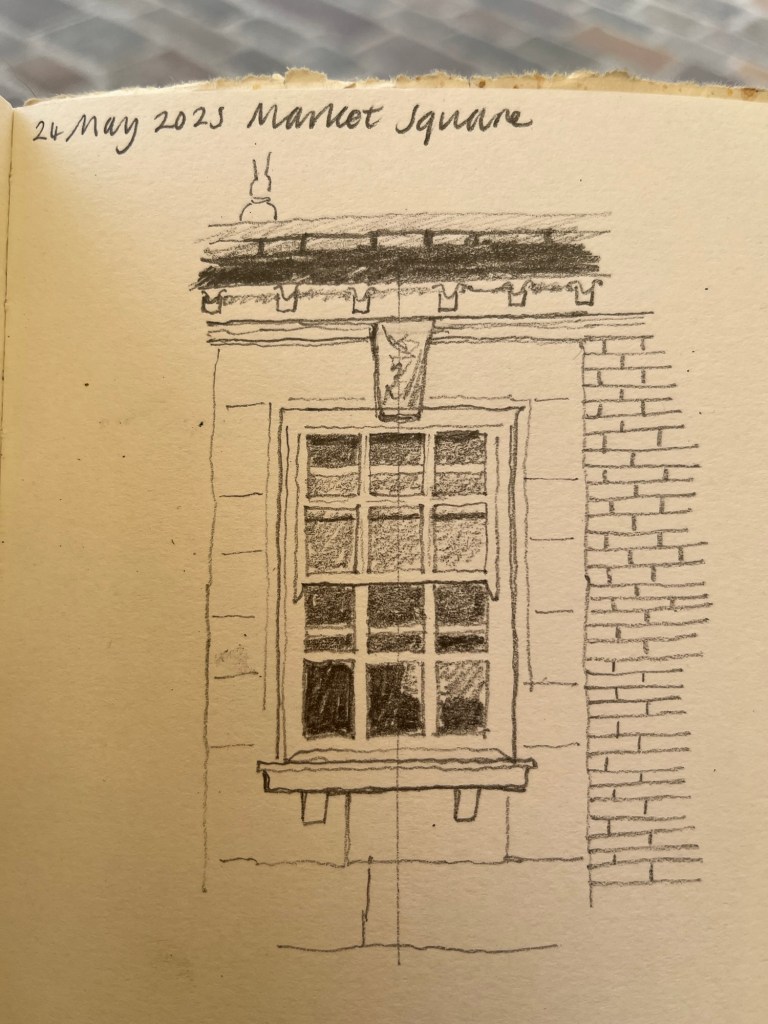 24 May 2025 Market Square